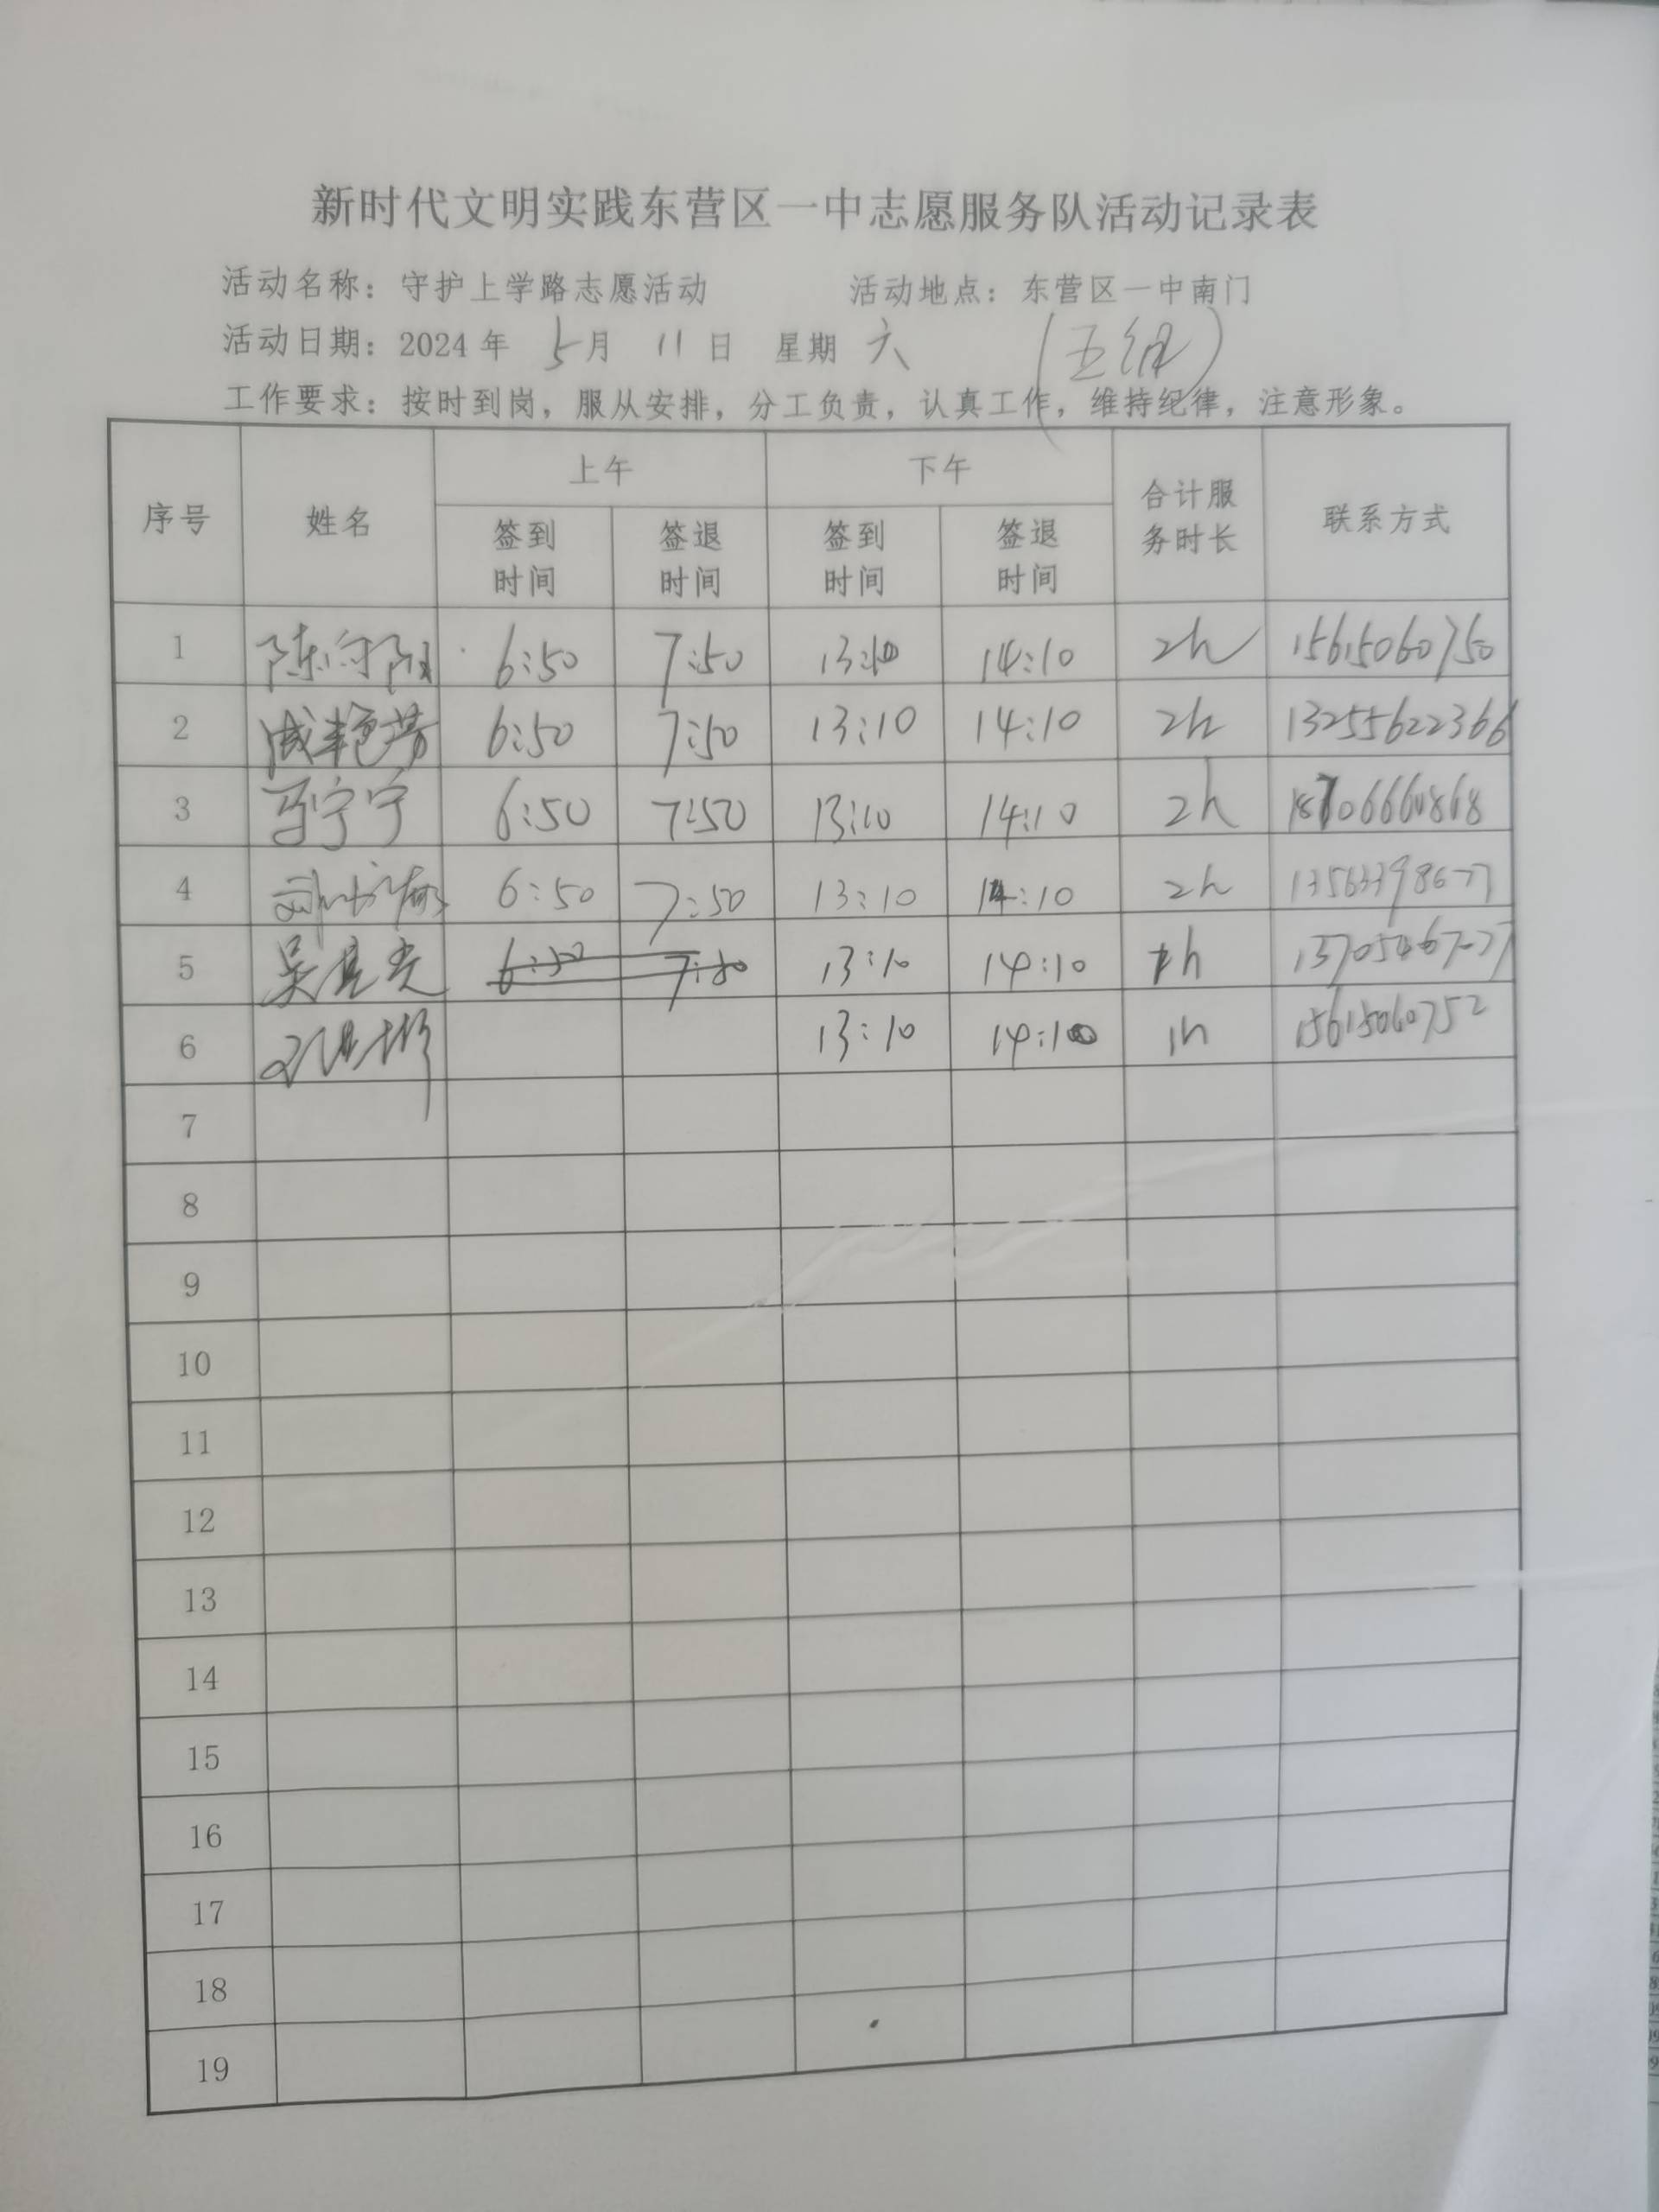 新时代文明实践东营区一中志愿服务队活动记录表
活动名称：守护上学路志愿活动 活动地点：东营区一中南门
活动日期：2024年 5月 11日 星期 六 （五组）
工作要求：按时到岗，服从安排，分工负责，认真工作，维持纪律，注意形象。
序号 姓名 上午 下午 合计服务时长 联系方式
签到时间 签退时间 签到时间 签退时间
1 6:50 7:50 13:10 14:10 2h 15615060750
2 成艳芳 6:50 7:50 13:10 14:10 2h 13255622366
3 马宁宁 6:50 7:50 13:10 14:10 2h
4 6:50 7:50 13:10 14:10 2h 13563398677
5 6:50 7:50 13:10 14:10 1h
6 13:10 14:10 1h 15615060752
7
8
9
10
11
12
13
14
15
16
17
18
19